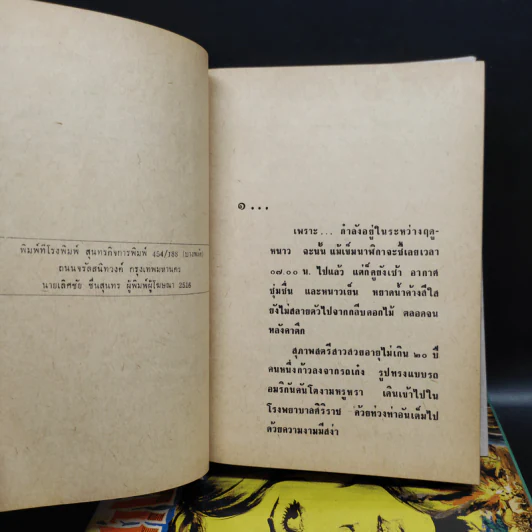 พิมพ์ที่โรงพิมพ์ สุนทรกิจการพิมพ์ 454/188
ถนนจรัลสนิทวงศ์ กรุงเทพมหานคร
นายเลิศชัย ชื่นสุนทร ผู้พิมพ์ผู้โฆษณา 2516
๑...
เพราะ... กำลังอยู่ในระหว่างฤดู-
หนาว ฉะนั้น แม้เข็มนาฬิกาจะชี้เลยเวลา
๐๗.๐๐ น. ไปแล้ว แต่ก็ดูยังเช้า อากาศ
ชุ่มชื่น และหนาวเย็น หยาดน้ำค้างสีใส
ยังไม่สลายตัวไปจากกลีบดอกไม้ ตลอดจน
หลังคาตึก
สุภาพสตรีสาวสวยอายุไม่เกิน ๒๐ ปี
คนหนึ่งก้าวลงจากรถเก๋ง รูปทรงแบบรถ
อเมริกันคันโตงามหรูหรา เดินเข้าไปใน
โรงพยาบาลศิริราช ด้วยท่วงท่าอันเต็มไป
ด้วยความงามมีสง่า